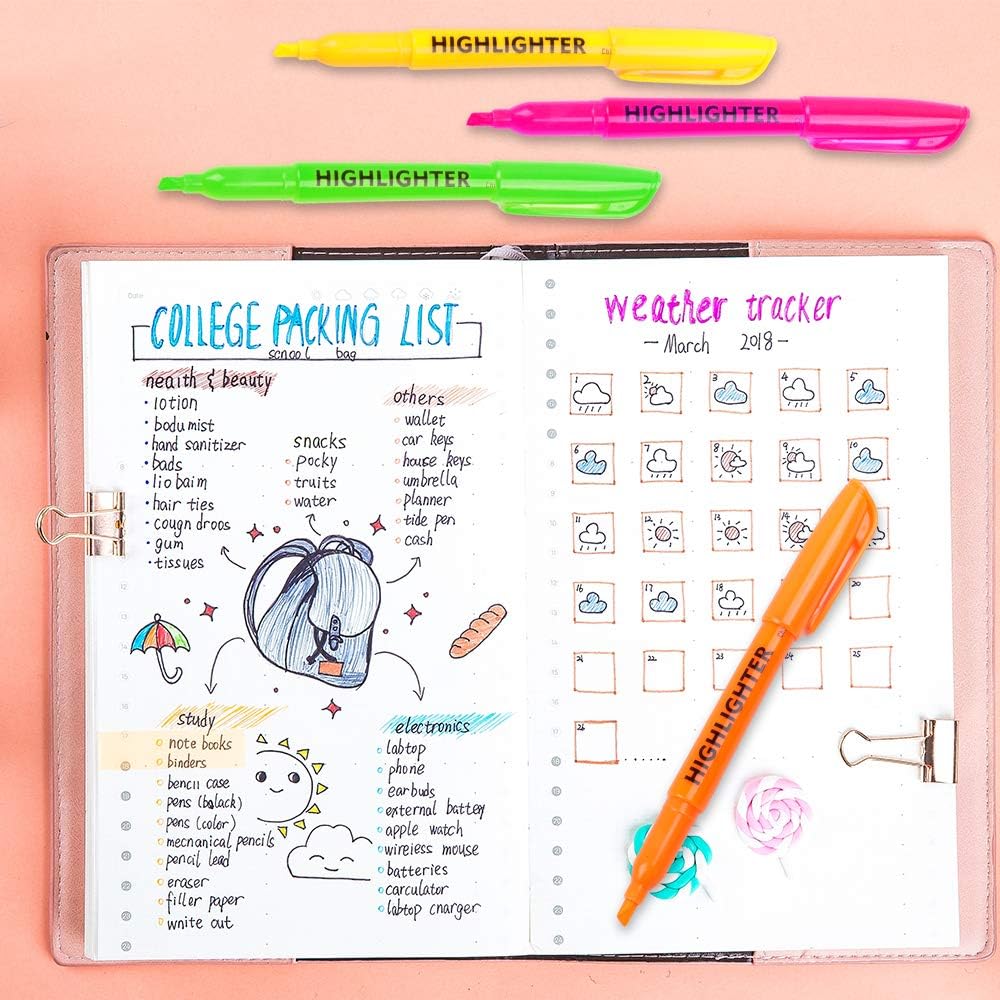 HIGHLIGHTER
HIGHLIGHTER
HIGHLIGHTER
Date
COLLEGE PACKING LIST
scnool bag
neaith & beauty
• lotion
• bodu mist
• hand sanitizer
• bads
• lio baim
• hair ties
• cougn droos
• gum
• tissues
snacks
pocky
truits
water
others
wallet
car keys
house keys
umbrella
planner
tide pen
cash
study
note books
binders
bencil case
pens (balack)
pens (color)
mecnanical pencils
pencil lead
eraser
filler paper
wnite out
electronics
labtop
phone
earbuds
external battey
apple watch
wireless mouse
batteries
carculator
labtop cnarger
weather tracker
- March 2018 -
1 2 3 4 5
6 7 8 9 10
11 12 13 14
16 17 18 20
21 22 23 24 25
26 ......
HIGHLIGHTER